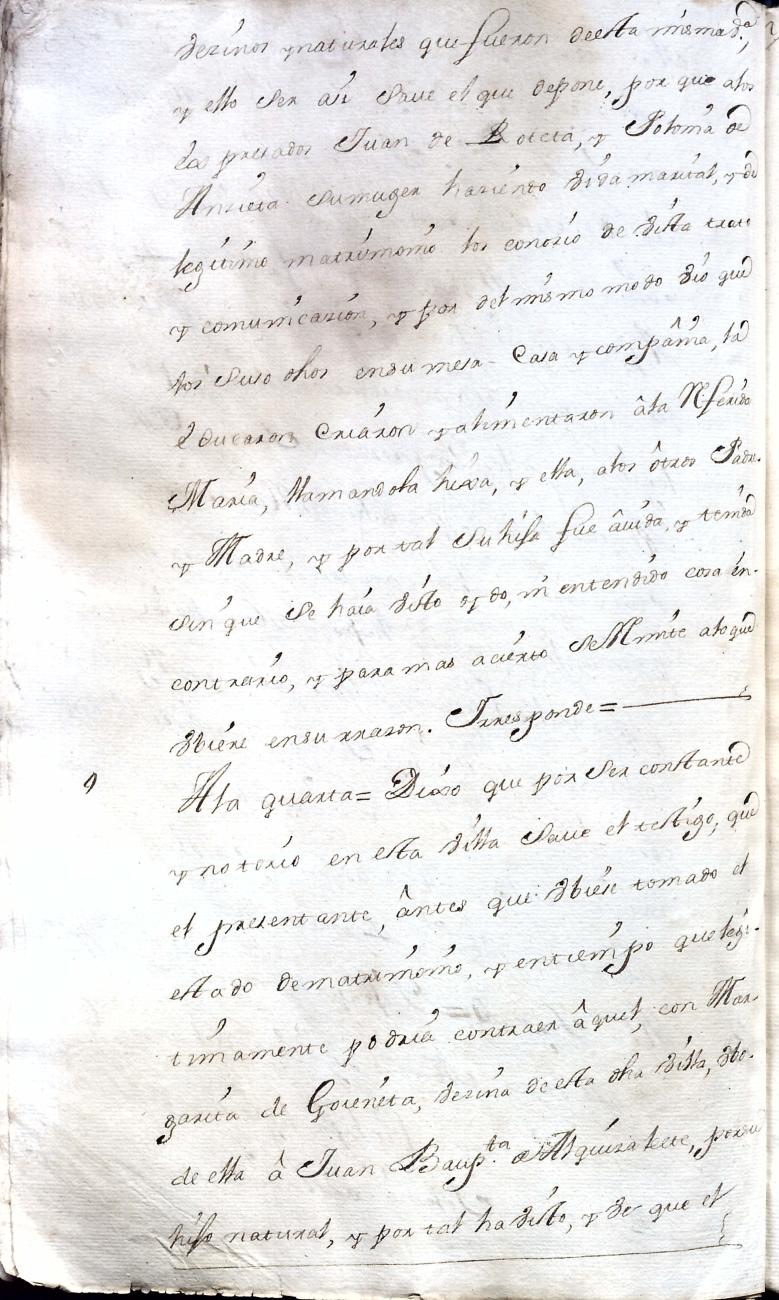 vezinos y naturales que fueron de esta misma va,
y ello ser asi save el que depone, por que a los
expresados Juan de Roteta, y Paloma de
Anzieta su muger haziendo vida marital, y de
legitimo matrimonio los conozio de vista trato
y comunicazion, y por del mismo modo vio que
los suso dhos en su mesa Casa y compañia, la
educaron criaron y alimentaron â la Referida
Maria, llamandola hixa, y ella, a los ôtros Padre
y Madre, y por tal su hija fue âvida, y tenida
sin que se haia visto oydo, ni entendido cosa en
contrario, y para mas acierto se Rmite a lo que
vbiere en su rrazon. Y rresponde =
9
A la quarta = Dixo que por ser constante
y notorio en esta villa save el testigo, que
el presentante, ântes que vbiese tomado el
estado de matrimonio, y en tiempo que legi-
timamente podria contraer âquel, con Mar-
garita de Goieneta, vezina de esta dha villa, vbo
de ella â Juan Baupta de Alquizalete, por su
hijo natural, y por tal ha visto, y ve que el